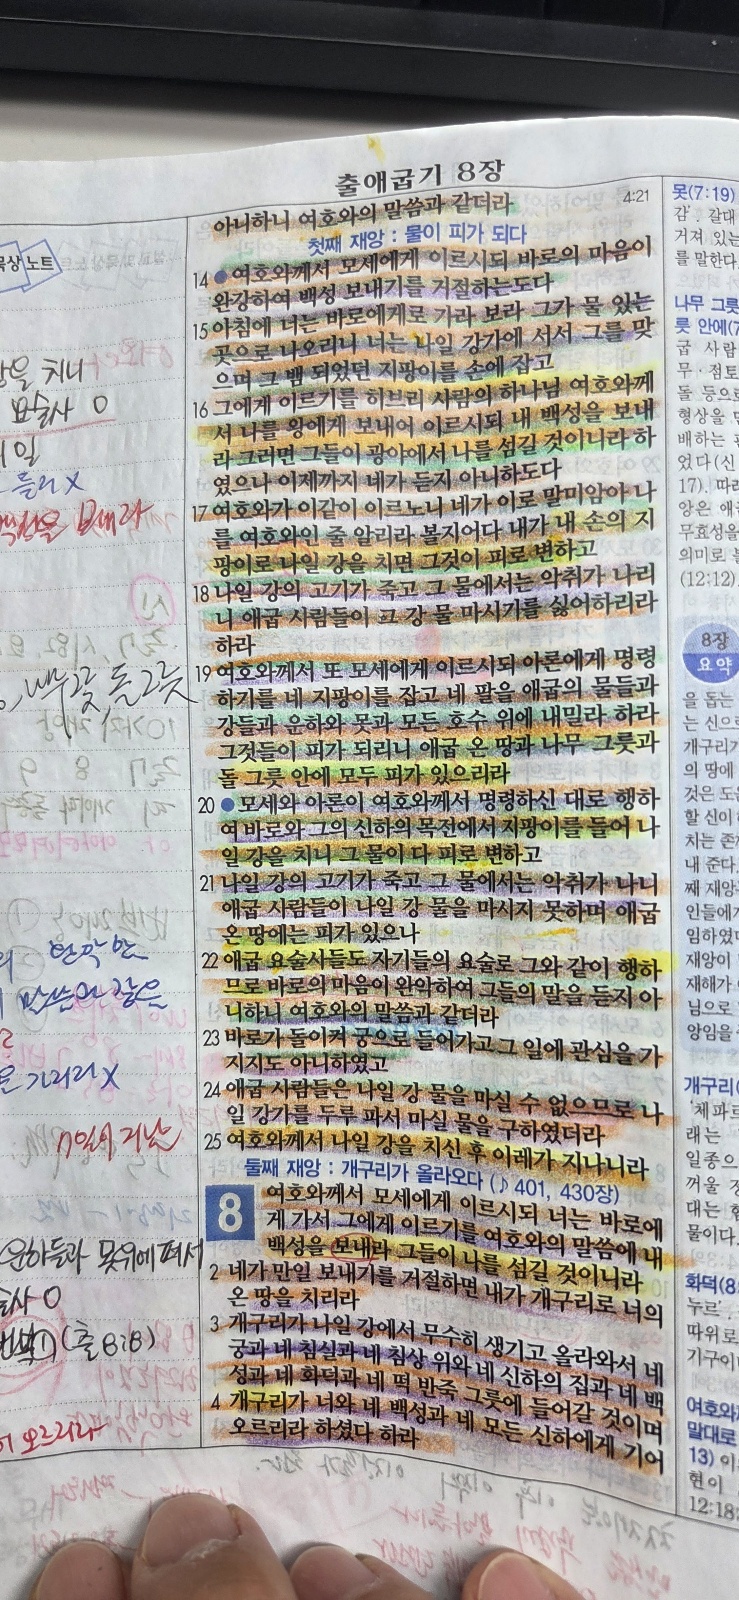 출애굽기 8장
4:21
아니하니 여호와의 말씀과 같더라
첫째 재앙 : 물이 피가 되다
14 ● 여호와께서 모세에게 이르시되 바로의 마음이
완강하여 백성 보내기를 거절하는도다
15 아침에 너는 바로에게로 가라 보라 그가 물 있는
곳으로 나오리니 너는 나일 강가에 서서 그를 맞
으며 그 뱀 되었던 지팡이를 손에 잡고
16 그에게 이르기를 히브리 사람의 하나님 여호와께
서 나를 왕에게 보내어 이르시되 내 백성을 보내
라 그러면 그들이 광야에서 나를 섬길 것이니라 하
였으나 이제까지 네가 듣지 아니하도다
17 여호와가 이같이 이르노니 네가 이로 말미암아 나
를 여호와인 줄 알리라 볼지어다 내가 내 손의 지
팡이로 나일 강을 치면 그것이 피로 변하고
18 나일 강의 고기가 죽고 그 물에서는 악취가 나리
니 애굽 사람들이 그 강 물 마시기를 싫어하리라
하라
19 여호와께서 또 모세에게 이르시되 아론에게 명령
하기를 네 지팡이를 잡고 네 팔을 애굽의 물들과
강들과 운하와 못과 모든 호수 위에 내밀라 하라
그것들이 피가 되리니 애굽 온 땅과 나무 그릇과
돌 그릇 안에 모두 피가 있으리라
20 ● 모세와 아론이 여호와께서 명령하신 대로 행하
여 바로와 그의 신하의 목전에서 지팡이를 들어 나
일 강을 치니 그 물이 다 피로 변하고
21 나일 강의 고기가 죽고 그 물에서는 악취가 나니
애굽 사람들이 나일 강 물을 마시지 못하며 애굽
온 땅에는 피가 있으나
22 애굽 요술사들도 자기들의 요술로 그와 같이 행하
므로 바로의 마음이 완악하여 그들의 말을 듣지 아
니하니 여호와의 말씀과 같더라
23 바로가 돌이켜 궁으로 들어가고 그 일에 관심을 가
지지도 아니하였고
24 애굽 사람들은 나일 강 물을 마실 수 없으므로 나
일 강가를 두루 파서 마실 물을 구하였더라
25 여호와께서 나일 강을 치신 후 이레가 지나니라
둘째 재앙 : 개구리가 올라오다 (♪ 401, 430장)
8 여호와께서 모세에게 이르시되 너는 바로에
게 가서 그에게 이르기를 여호와의 말씀에 내
백성을 보내라 그들이 나를 섬길 것이니라
2 네가 만일 보내기를 거절하면 내가 개구리로 너의
온 땅을 치리라
3 개구리가 나일 강에서 무수히 생기고 올라와서 네
궁과 네 침실과 네 침상 위와 네 신하의 집과 네 백
성과 네 화덕과 네 떡 반죽 그릇에 들어갈 것이며
4 개구리가 너와 네 백성과 네 모든 신하에게 기어
오르리라 하셨다 하라
묵상 노트
을 치니
요술사 O
일
보내라
나무 그릇, 돌그릇
기리리 X
7일이 지남
운하들과 못위에 펴서
(출 8:8)
오르리라
못(7:19)
갈대
거져 있는
를 말한다.
나무 그릇
릇 안에(7
굽 사람
무·점토
돌 등으로
형상을
배하는
었다(신
17). 따라
양은 애굽
무효성을
의미로
(12:12).
8장
요약
을 돕는
는 신으로
개구리가
의 땅에
것은
할 신이
치는 존재
내 준다.
째 재앙
인들에게
임하였
재앙이
재해가
님으로
앙임을
개구리(
래는
일종으
꺼울
대는
물이다.
화덕(8:
누르',
따위로
기구이
여호와
말대로
13)
현이
12:18